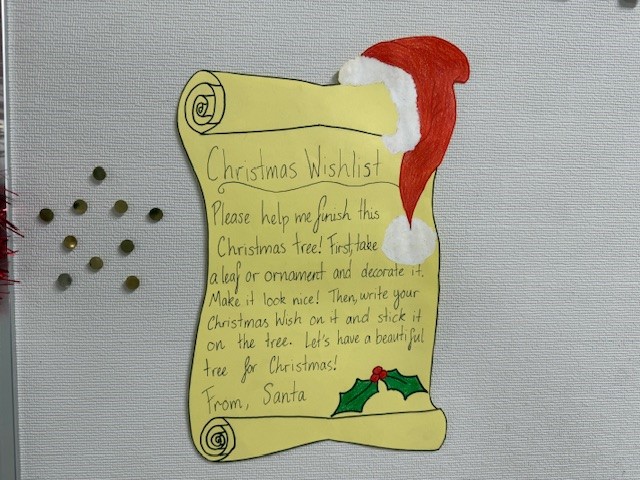 Christmas Wishlist
Please help me finish this
Christmas tree! First, take
a leaf or ornament and decorate it.
Make it look nice! Then, write your
Christmas Wish on it and stick it
on the tree. Let's have a beautiful
tree for Christmas!
From, Santa